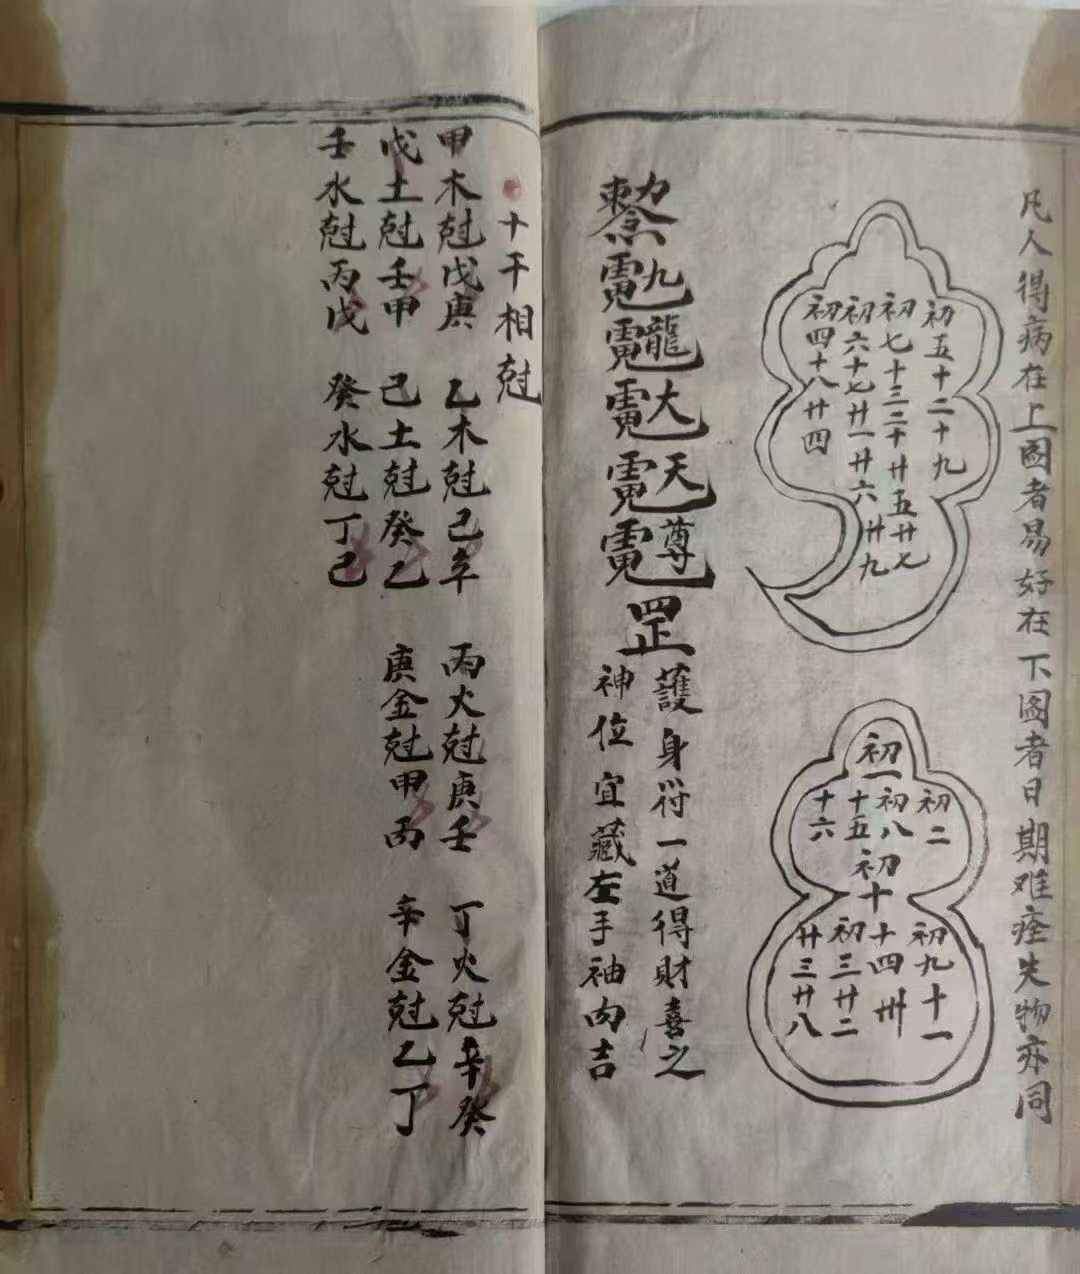 凡人得病在上圖者易好在下圖者日期难痊失物亦同
初五十二十九
初七十三二十廿五廿七
初六十七廿一廿六廿九
初四十八廿四
初一
初二
初八
十五
十六
初十
初九十一
十四卅
初三廿二
廿三廿八
九龍大天尊
罡
護身符一道得財喜之
神位宜藏左手袖內吉
十干相尅
甲木尅戊庚 乙木尅己辛 丙火尅庚壬 丁火尅辛癸
戊土尅壬甲 己土尅癸乙 庚金尅甲丙 辛金尅乙丁
壬水尅丙戊 癸水尅丁己